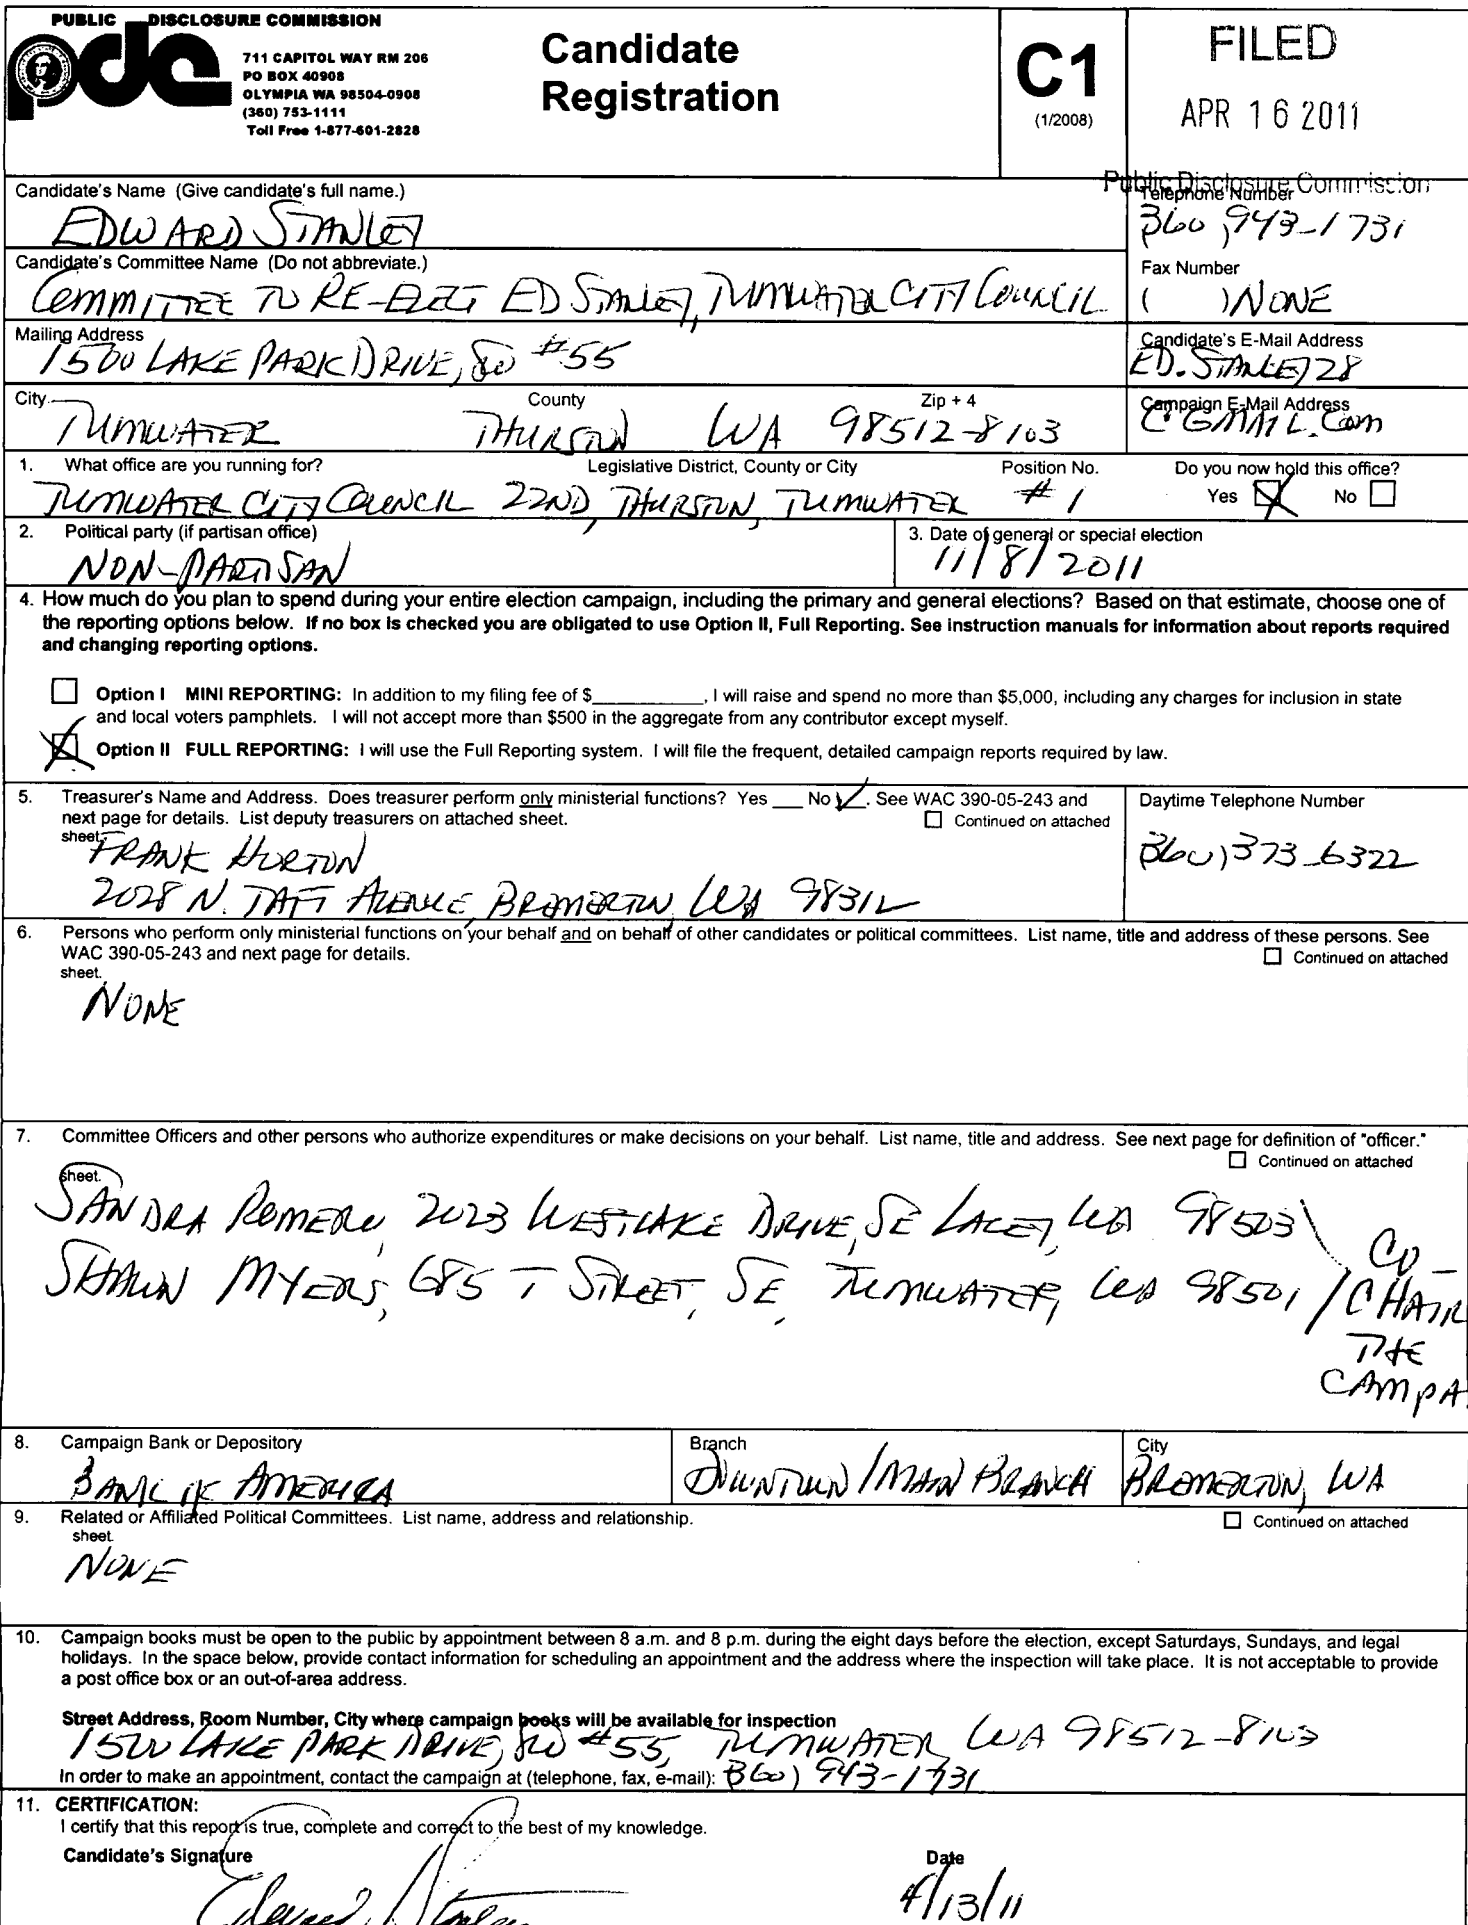 PUBLIC DISCLOSURE COMMISSION
pdc
711 CAPITOL WAY RM 206
PO BOX 40908
OLYMPIA WA 98504-0908
(360) 753-1111
Toll Free 1-877-601-2828
Candidate
Registration
C1
(1/2008)
FILED
APR 16 2011
Public Disclosure Commission
Candidate's Name (Give candidate's full name.)
EDWARD STANLEY
Telephone Number
360) 943-1731
Candidate's Committee Name (Do not abbreviate.)
COMMITTEE TO RE-ELECT ED STANLEY, TUMWATER CITY COUNCIL
Fax Number
( ) NONE
Mailing Address
1500 LAKE PARK DRIVE, SW #55
Candidate's E-Mail Address
ED.STANLEY28
City County Zip + 4
TUMWATER THURSTON WA 98512-8103
Campaign E-Mail Address
@GMAIL.COM
1. What office are you running for? Legislative District, County or City Position No. Do you now hold this office?
TUMWATER CITY COUNCIL 22ND, THURSTON, TUMWATER #1
Yes X No
2. Political party (if partisan office)
NON-PARTISAN
3. Date of general or special election
11/8/2011
4. How much do you plan to spend during your entire election campaign, including the primary and general elections? Based on that estimate, choose one of
the reporting options below. If no box is checked you are obligated to use Option II, Full Reporting. See instruction manuals for information about reports required
and changing reporting options.
Option I MINI REPORTING: In addition to my filing fee of $___________, I will raise and spend no more than $5,000, including any charges for inclusion in state
and local voters pamphlets. I will not accept more than $500 in the aggregate from any contributor except myself.
X Option II FULL REPORTING: I will use the Full Reporting system. I will file the frequent, detailed campaign reports required by law.
5. Treasurer's Name and Address. Does treasurer perform only ministerial functions? Yes ___ No ✓. See WAC 390-05-243 and
next page for details. List deputy treasurers on attached sheet. Continued on attached
sheet.
FRANK HORTON
2028 N. TAFT AVENUE, BREMERTON, WA 98312
Daytime Telephone Number
360) 373-6322
6. Persons who perform only ministerial functions on your behalf and on behalf of other candidates or political committees. List name, title and address of these persons. See
WAC 390-05-243 and next page for details. Continued on attached
sheet.
NONE
7. Committee Officers and other persons who authorize expenditures or make decisions on your behalf. List name, title and address. See next page for definition of "officer."
Continued on attached
sheet.
SANDRA ROMERO, 2023 WESTLAKE DRIVE, SE LACEY, WA 98503
SHAWN MYERS, 685 T STREET, SE, TUMWATER, WA 98501
CO-
CHAIR
THE
CAMPA
8. Campaign Bank or Depository
BANK OF AMERICA
Branch
DOWNTOWN/MAIN BRANCH
City
BREMERTON, WA
9. Related or Affiliated Political Committees. List name, address and relationship. Continued on attached
sheet.
NONE
10. Campaign books must be open to the public by appointment between 8 a.m. and 8 p.m. during the eight days before the election, except Saturdays, Sundays, and legal
holidays. In the space below, provide contact information for scheduling an appointment and the address where the inspection will take place. It is not acceptable to provide
a post office box or an out-of-area address.
Street Address, Room Number, City where campaign books will be available for inspection
1500 LAKE PARK DRIVE, SW #55, TUMWATER WA 98512-8103
In order to make an appointment, contact the campaign at (telephone, fax, e-mail): 360) 943-1731
11. CERTIFICATION:
I certify that this report is true, complete and correct to the best of my knowledge.
Candidate's Signature Date
Edward Stanley 4/13/11